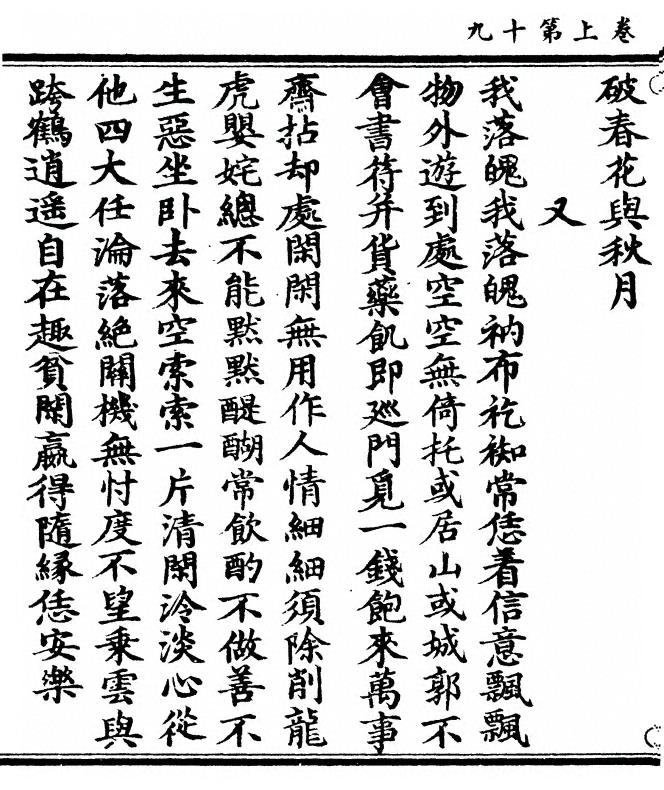 卷上第十九
破春花與秋月
又
我落魄我落魄衲布衤乞𥘡常恁着信意飄飄
物外遊到處空空無倚托或居山或城郭不
會書符并貨藥飢即廵門覓一錢飽來萬事
齊拈却處閑閑無用作人情細細須除削龍
虎嬰姹總不能默默醍醐常飲酌不做善不
生惡坐卧去來空索索一片清閑泠淡心從
他四大任淪落絕關機無忖度不望乗雲與
跨鶴逍遥自在趣貧閑贏得隨縁恁安樂